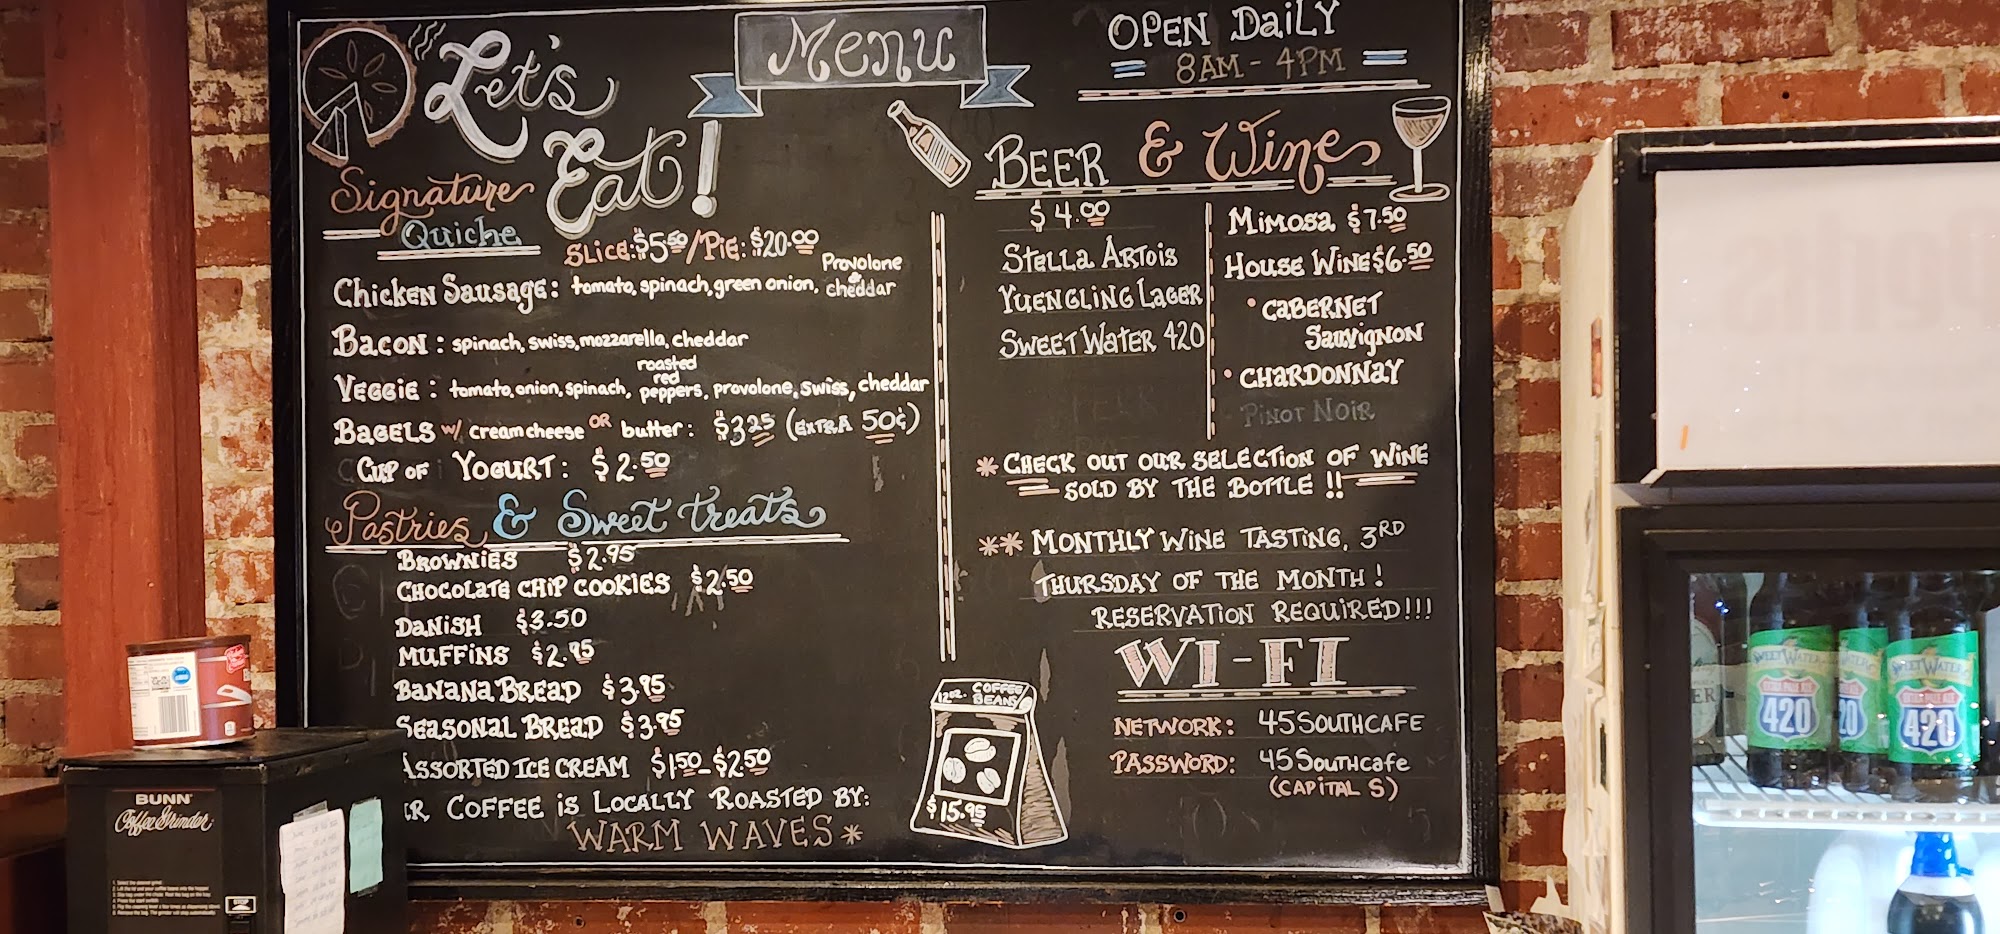 Menu
Let's
Eat!
Signature
Quiche
SLICE: $5.50 / PIE: $20.00
Chicken Sausage: tomato, spinach, green onion, Provolone & cheddar
Bacon: spinach, swiss, mozzarella, cheddar
Veggie: tomato, onion, spinach, roasted red peppers, provolone, swiss, cheddar
Bagels w/ cream cheese OR butter: $3.25 (EXTRA 50¢)
Cup of Yogurt: $2.50
Pastries & Sweet treats
Brownies $2.95
Chocolate Chip Cookies $2.50
Danish $3.50
Muffins $2.95
Banana Bread $3.95
Seasonal Bread $3.95
Assorted Ice Cream $1.50-$2.50
R Coffee is Locally Roasted by:
WARM WAVES*
OPEN DaiLY
8AM - 4PM
BEER & Wine
$4.00
Stella Artois
Yuengling Lager
SweetWater 420
Mimosa $7.50
House Wine $6.50
• Cabernet
Sauvignon
• Chardonnay
Pinot Noir
* CHECK OUT OUR SELECTION OF WINE
SOLD BY THE BOTTLE !!
** MONTHLY WINE TASTING, 3RD
THURSDAY OF THE MONTH!
RESERVATION REQUIRED!!!
WI-FI
NETWORK: 45SOUTHCAFE
PASSWORD: 45Southcafe
(CAPITAL S)
12oz. COFFEE
BEANS
$15.95
BUNN
Coffee Grinder
SWEETWATER
EXTRA PALE ALE
420
20
SWEETWATER
EXTRA PALE ALE
420